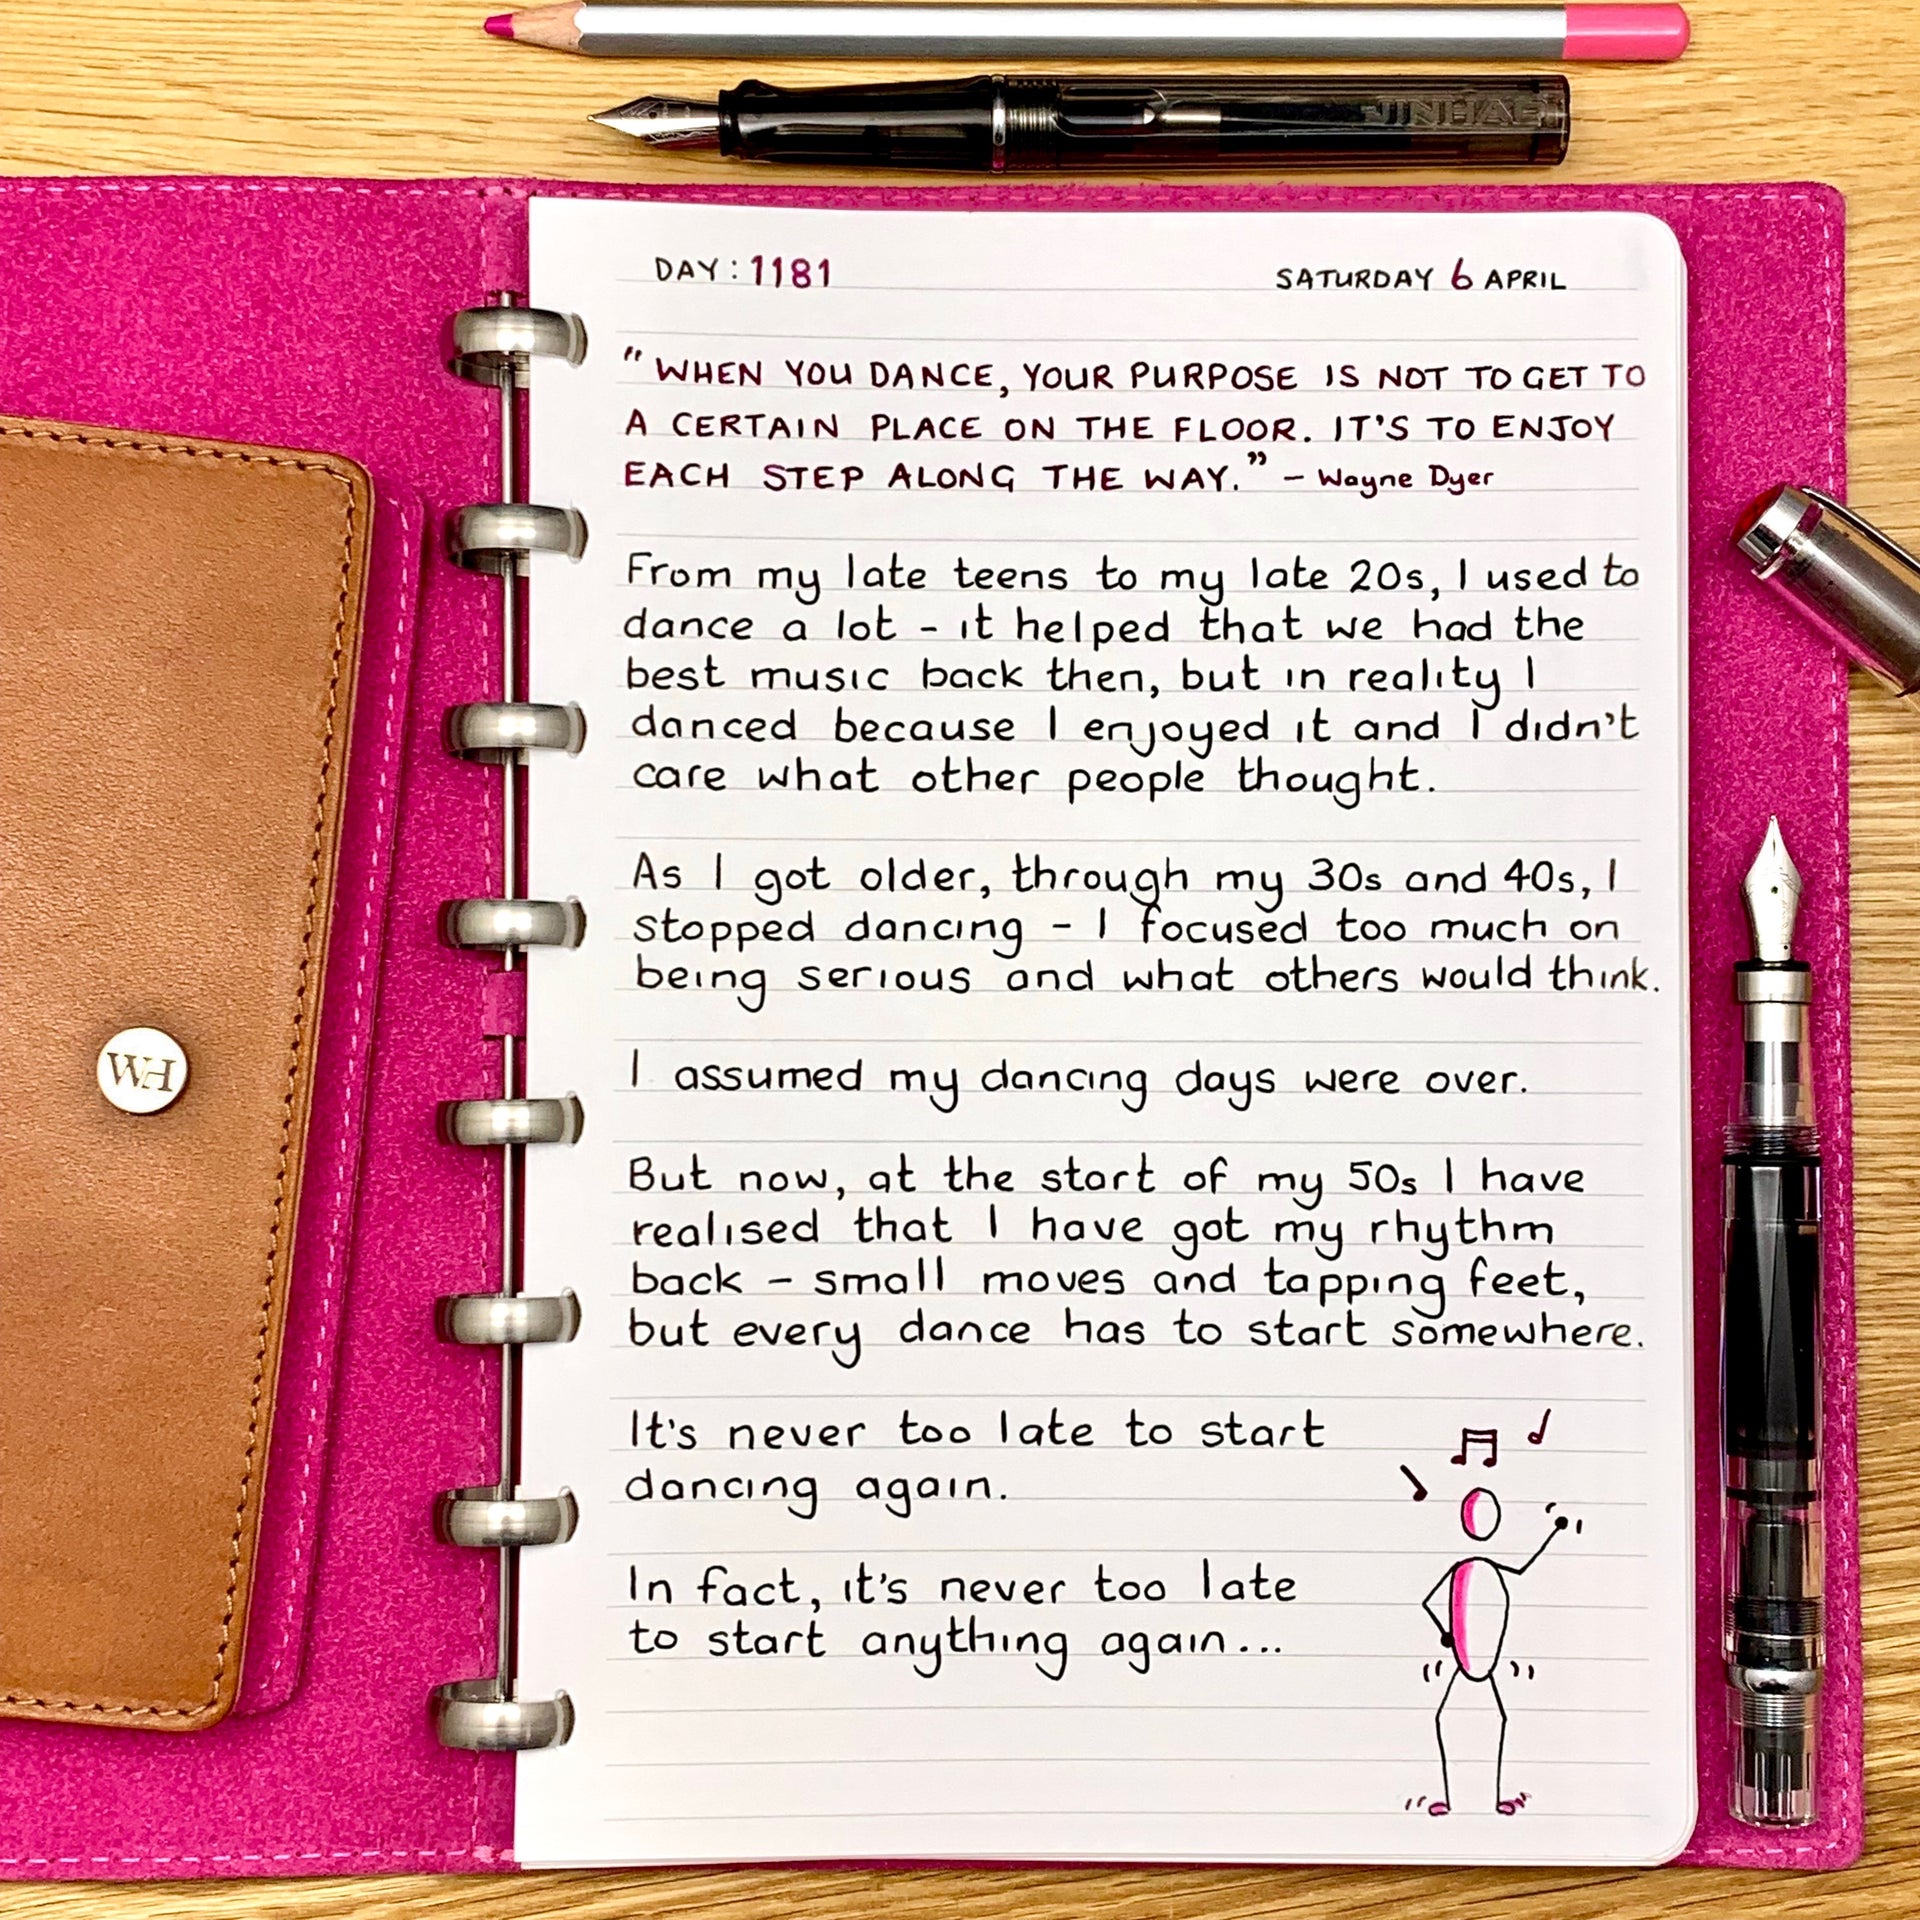 JINHAO
DAY: 1181
SATURDAY 6 APRIL
"WHEN YOU DANCE, YOUR PURPOSE IS NOT TO GET TO
A CERTAIN PLACE ON THE FLOOR. IT'S TO ENJOY
EACH STEP ALONG THE WAY." - Wayne Dyer
From my late teens to my late 20s, I used to
dance a lot - it helped that we had the
best music back then, but in reality I
danced because I enjoyed it and I didn't
care what other people thought.
As I got older, through my 30s and 40s, I
stopped dancing - I focused too much on
being serious and what others would think.
I assumed my dancing days were over.
WH
But now, at the start of my 50s I have
realised that I have got my rhythm
back - small moves and tapping feet,
but every dance has to start somewhere.
It's never too late to start
dancing again.
In fact, it's never too late
to start anything again...